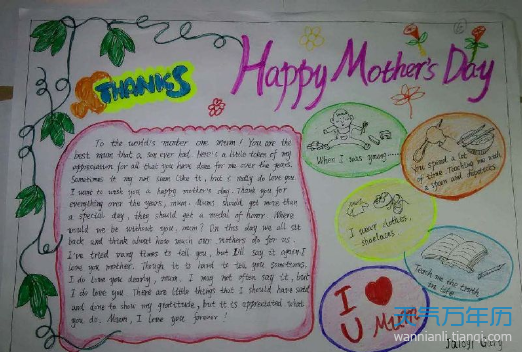 Happy Mother's Day
THANKS
To the world's number one mum! You are the
best mum that a son ever had, here is a little token of my
appreciation for all that you have done for me over the years.
Sometimes it may not seem like it, but I really do love you.
I want to wish you a happy mother's day. Thank you for
everything over the years, mum. Mums should get more than
a special day, they should get a medal of honor. Where
would we be without you, mum? On this day we all sit
back and think about how much our mothers do for us.
I've tried many times to tell you, but I'll say it again I
love you mother. Though it is hard to tell you sometimes,
I do love you dearly, mum. I may not often say it, but
I do love you. There are little things that I should have said
and done to show my gratitude, but it is appreciated what
you do. Mum, I love you forever!
When I was young......
You spend a lot
of time Teaching me with
a spoon and chopsticks
I wear clothes,
shoelaces
Teach me the truth
in life
I
U Mum
天气万年历
wannianli.tianqi.com